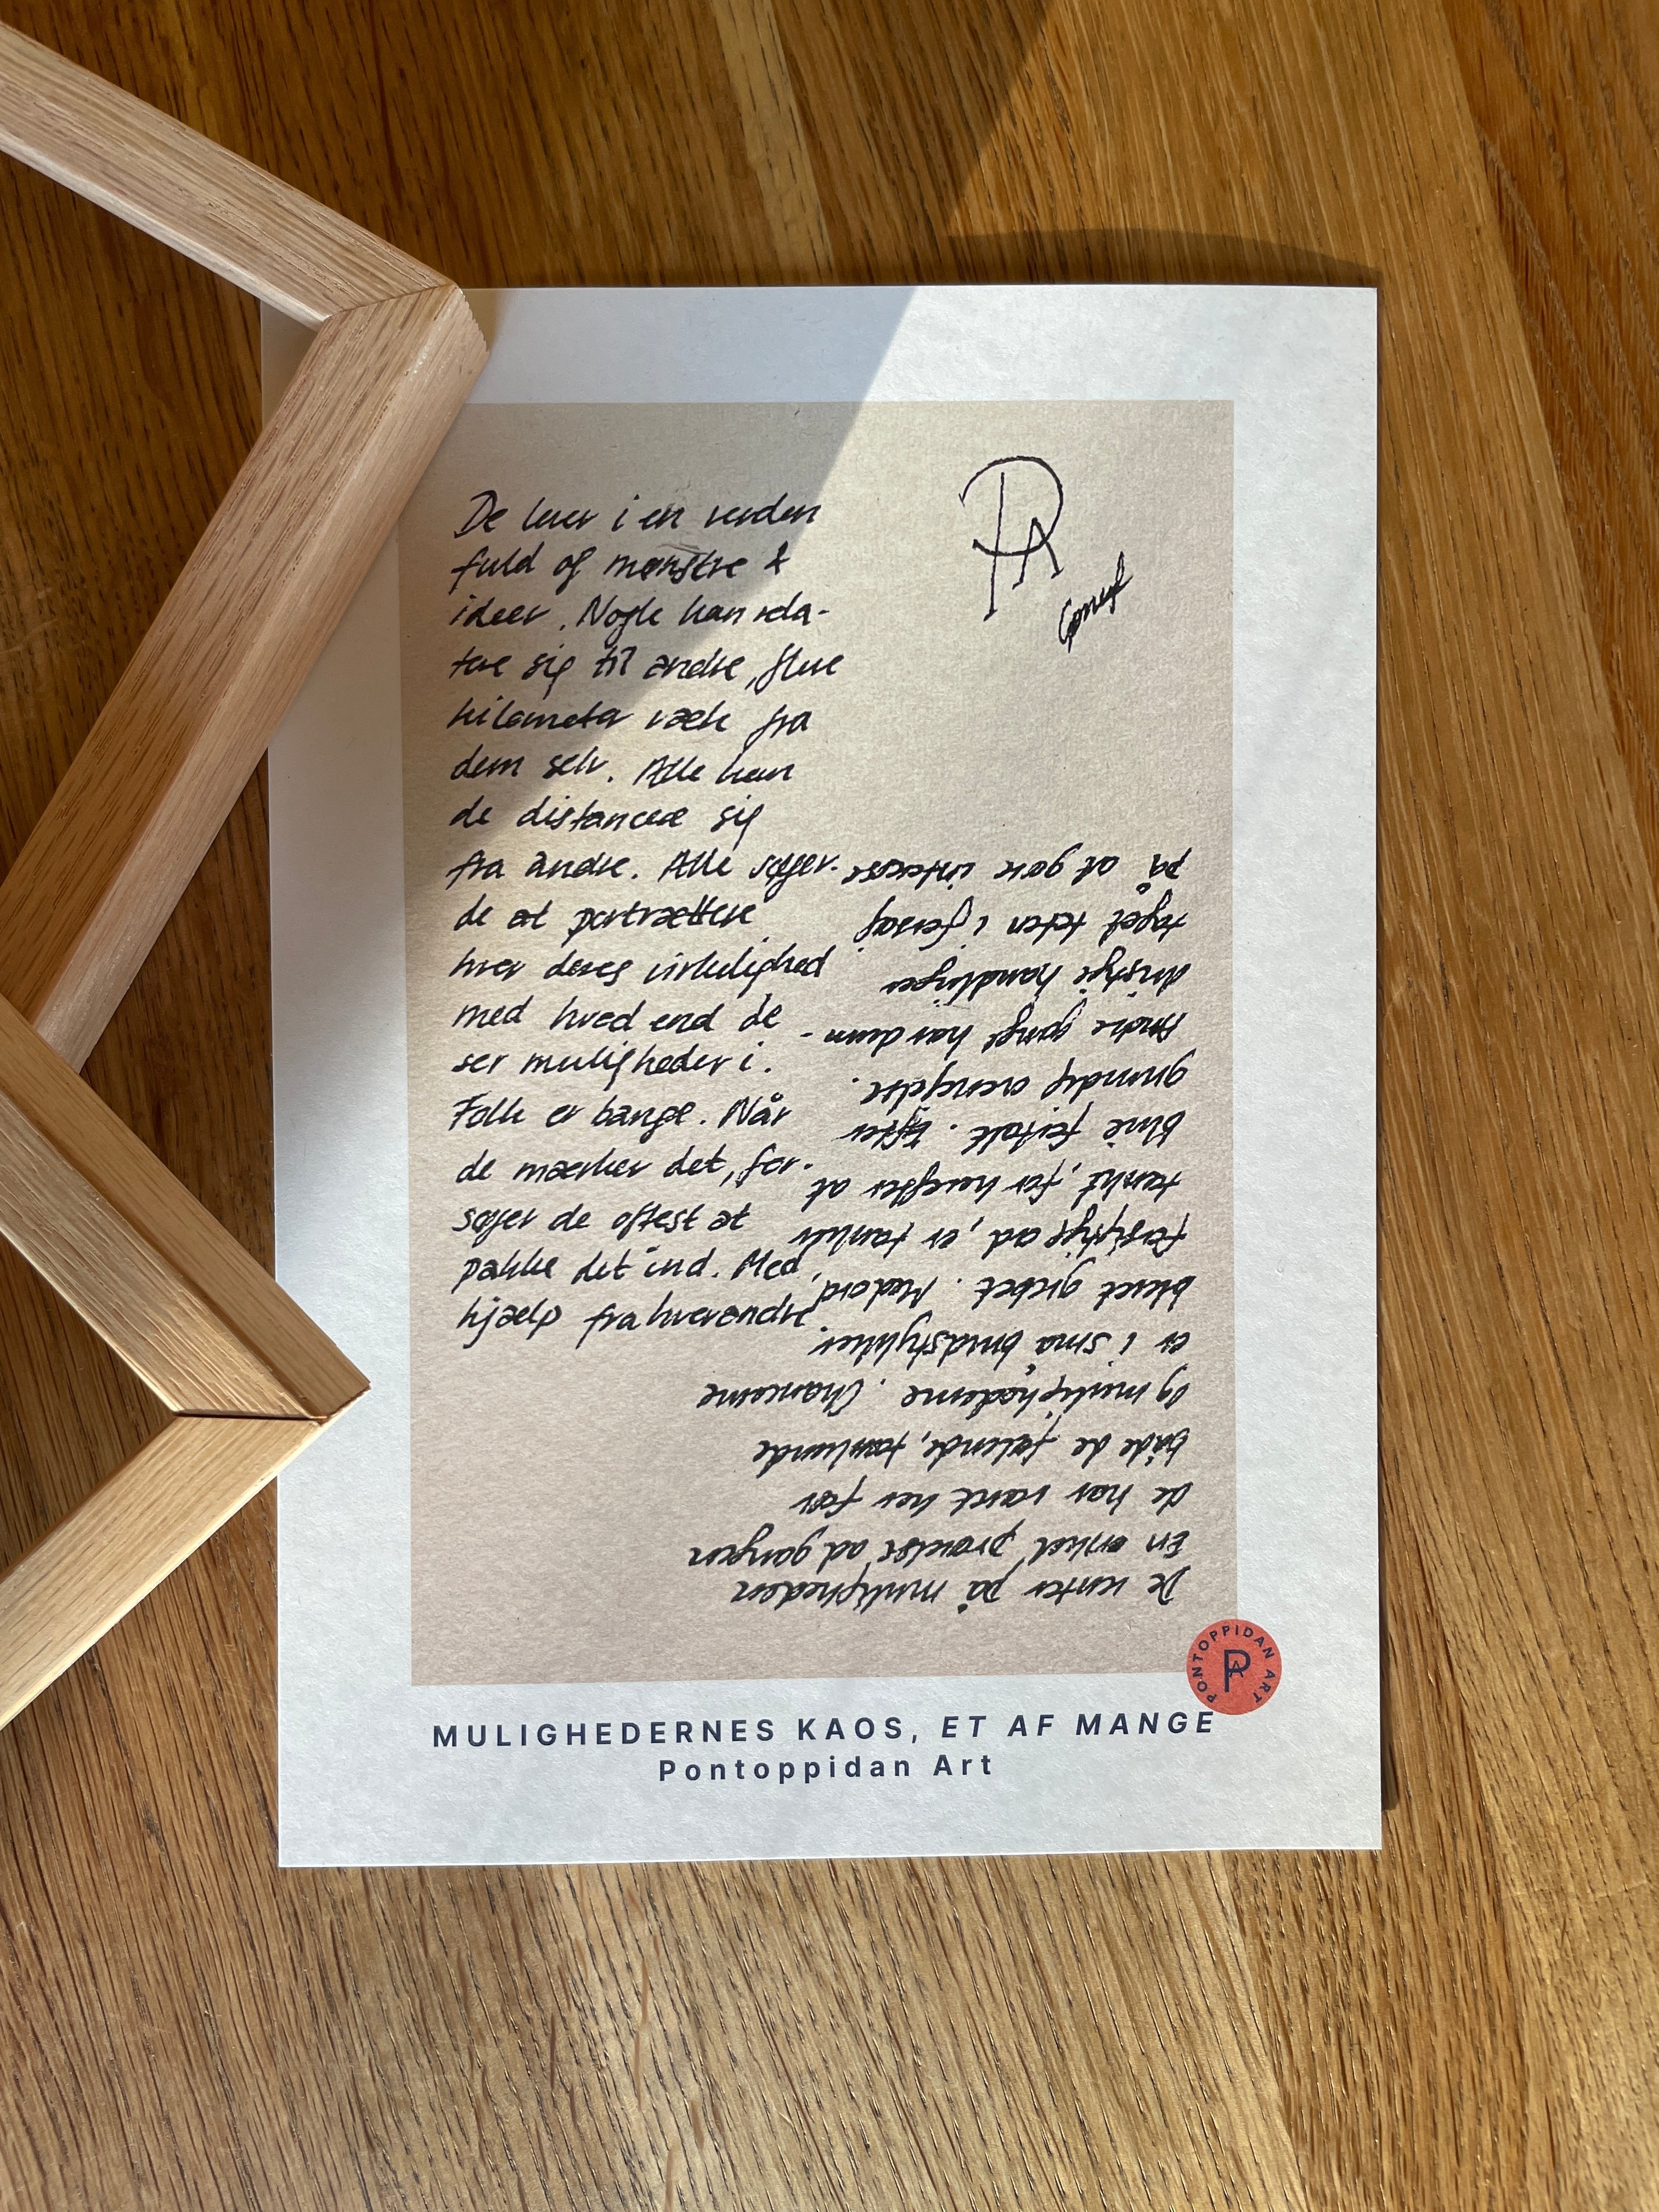 De lever i en verden
fuld af mønstre &
ideer. Nogle kan rela-
tere sig til andre, flere
kilometer væk fra
dem selv. Alle kan
de distancere sig
fra andre. Alle søger
de at portrættere
hver deres virkelighed
med hvad end de
ser muligheder i.
Folk er bange. Når
de mærker det, for-
søger de oftest at
pakke det ind. Med
hjælp fra hverandre.
De venter på muligheden
En enkel prøvelse ad gangen
de har været her før
både de følende, tænkende
Og mulighederne. Chancerne
er i små brudstykker
blevet grebet. Med ord
forsigtige ad, er tanker
tænkt, for herefter at
blive fortalt. Efter
grundig overvejelse.
Andre gange har dum-
dristige handlinger
taget teten i forsøg
på at gøre interesse
PA
MULIGHEDERNES KAOS, ET AF MANGE
Pontoppidan Art
PONTOPPIDAN ART
PA